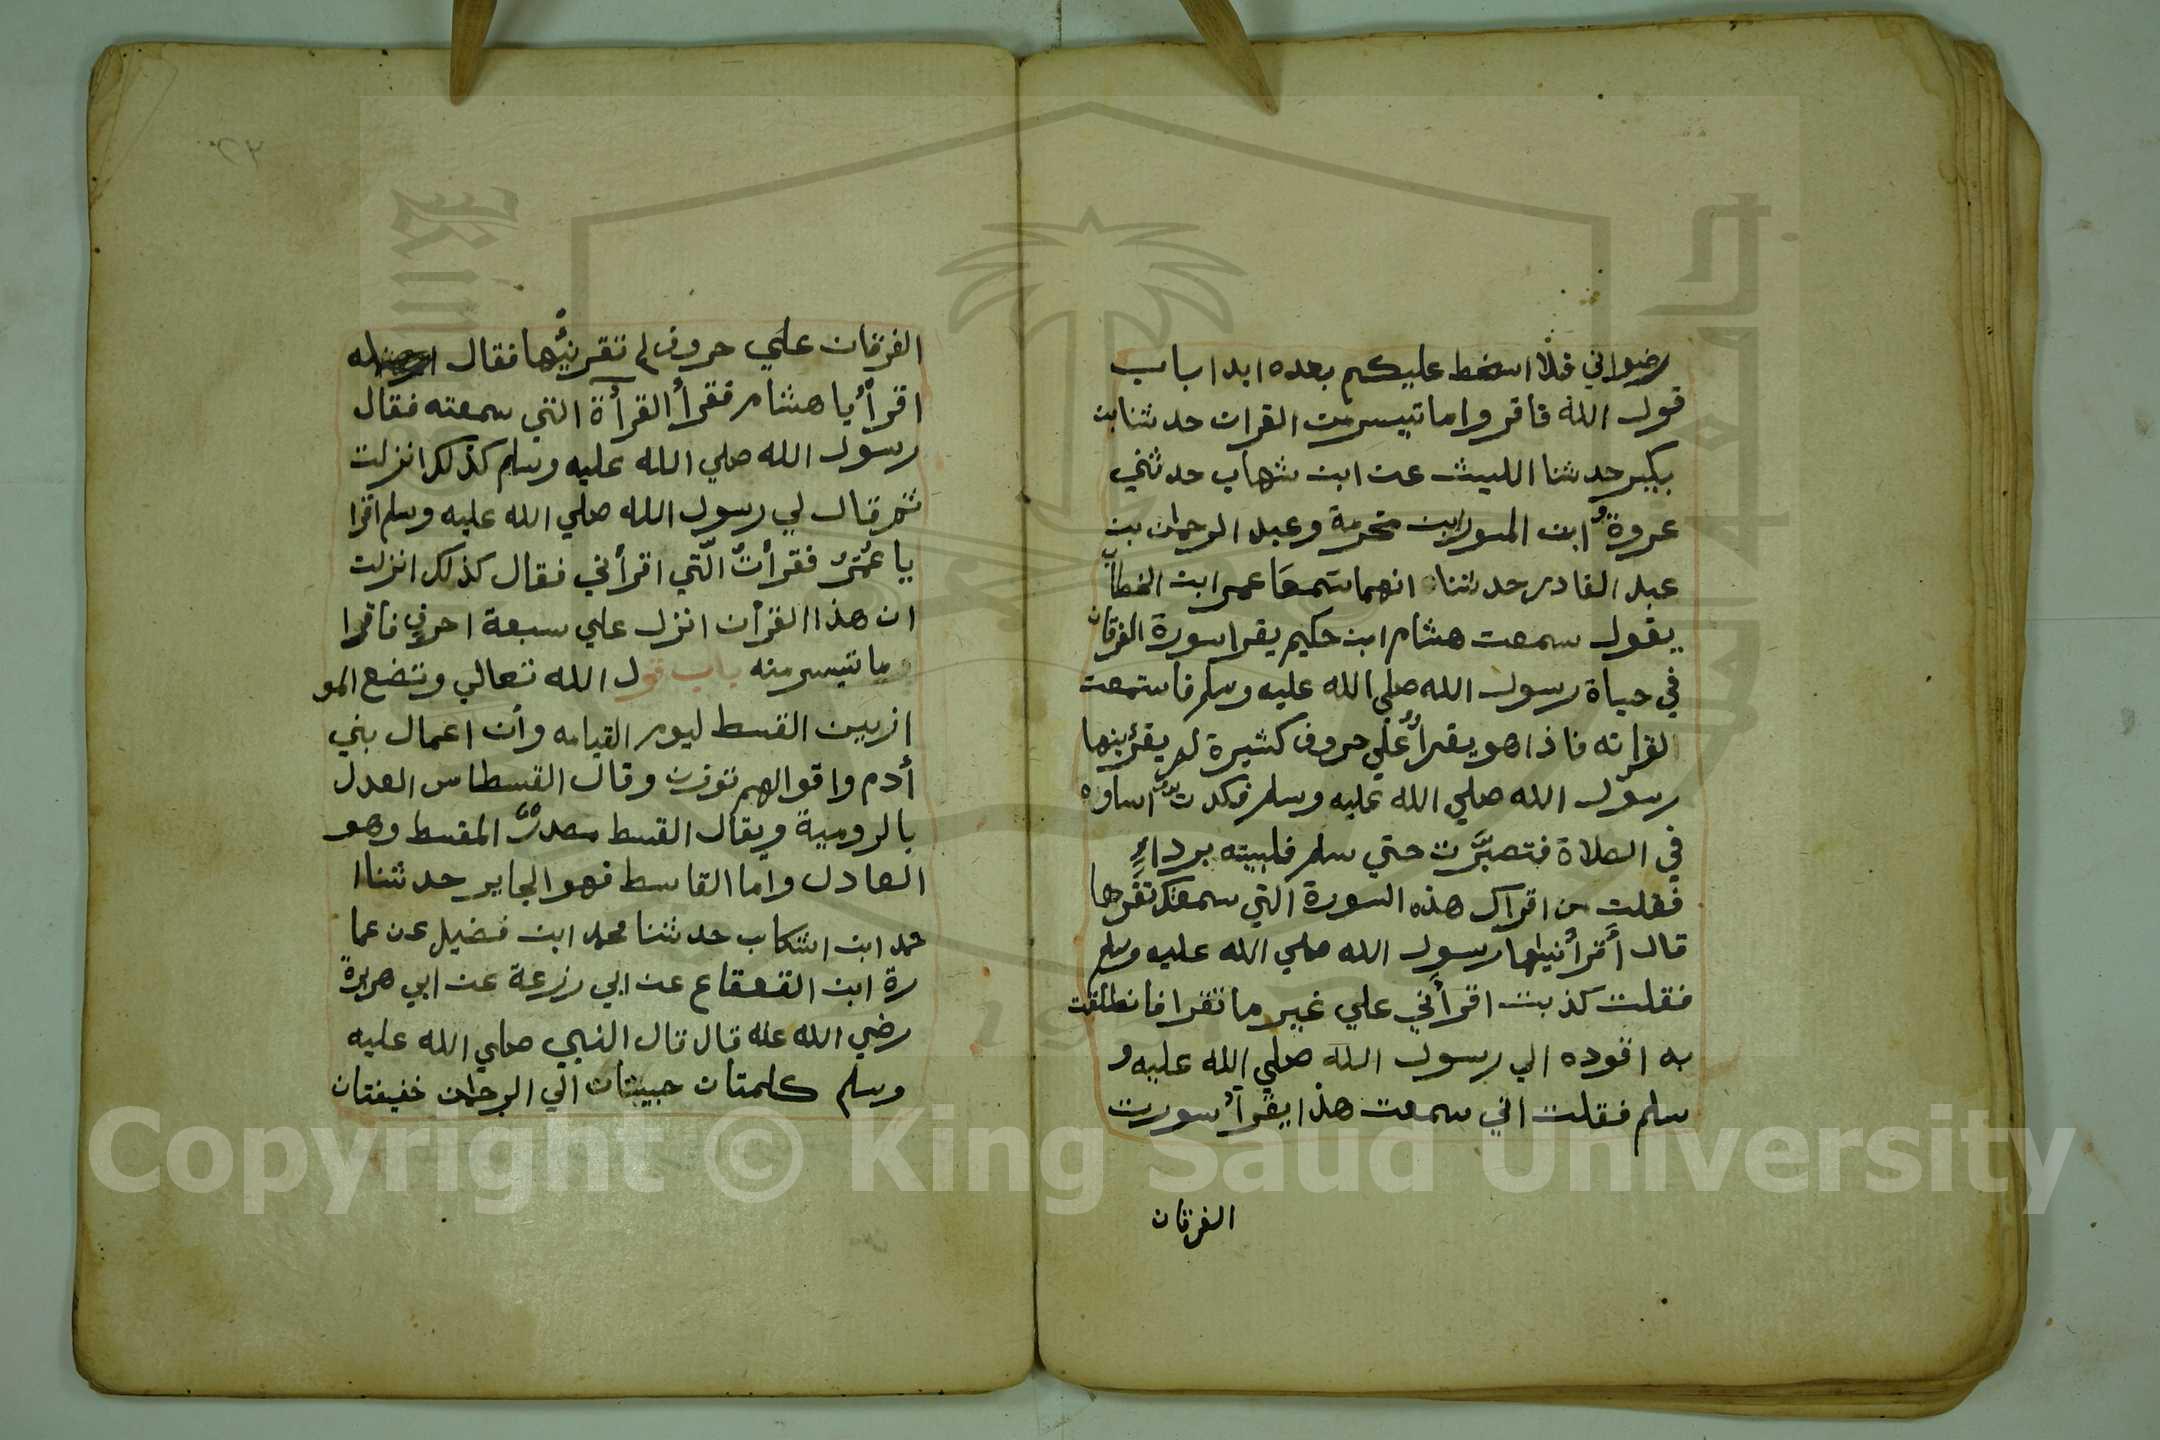 رضواني فلا اسخط عليكم بعده ابدا باب
قول الله فاقروا ما تيسر من القران حدثنا بن
بكير حدثنا الليث عن ابن شهاب حدثني
عروة ابن المسور ابن مخرمة وعبد الرحمن بن
عبد القادر حدثنا انهما سَمعَا عمر ابن الخطاب
يقول سمعت هشام ابن حكيم يقرا سورة الفرقان
في حياة رسول الله صلي الله عليه وسلم فاستمعت
لقراته فاذا هو يقرأُ علي حروف كثيرة لم يقرئينها
رسول الله صلي الله عليه وسلم فكدت اساوره
في الصلاة فتصبَّرت حتي سلم فلببته برداءِ
فقلت من اقراك هذه السورة التي سمعتك تقرها
قال أقرأنيها رسول الله صلي الله عليه وسلم
فقلت كذبت اقرأني علي غير ما تقرا فانطلقت
به اقوده الي رسول الله صلي الله عليه و
سلم فقلت اني سمعت هذا يقرأُ سورت
الفرقان
الفرقان علي حروف لم تقرئنيها فقال له
اقرأ يا هشام فقرأ القرأة التي سمعته فقال
رسول الله صلي الله عليه وسلم كذلك انزلت
ثم قال لي رسول الله صلي الله عليه وسلم اقرا
يا عُمَرُ فقرأتُ الّتي اقرأني فقال كذلك انزلت
ان هذا القرأن انزل علي سبعة احرفٍ فاقرا
وما تيسر منه باب قول الله تعالي ونضع المو
ازيين القسط ليوم القيامه وأن اعمال بني
أدم واقوالهم توزن وقال القسطاس العدل
بالرومية ويقال القسط مصدر المقسط وهو
العادل واما القاسط فهو الجاير حدثنا ا
حمد ابن اشكاب حدثنا محمد ابن فضيل عن عما
رة ابن القعقاع عن ابي زرعة عن ابي هريرة
رضي الله عنه قال قال النبي صلي الله عليه
وسلم كلمتان حبيبتان الي الرحمن خفيفتان
Copyright © King Saud University